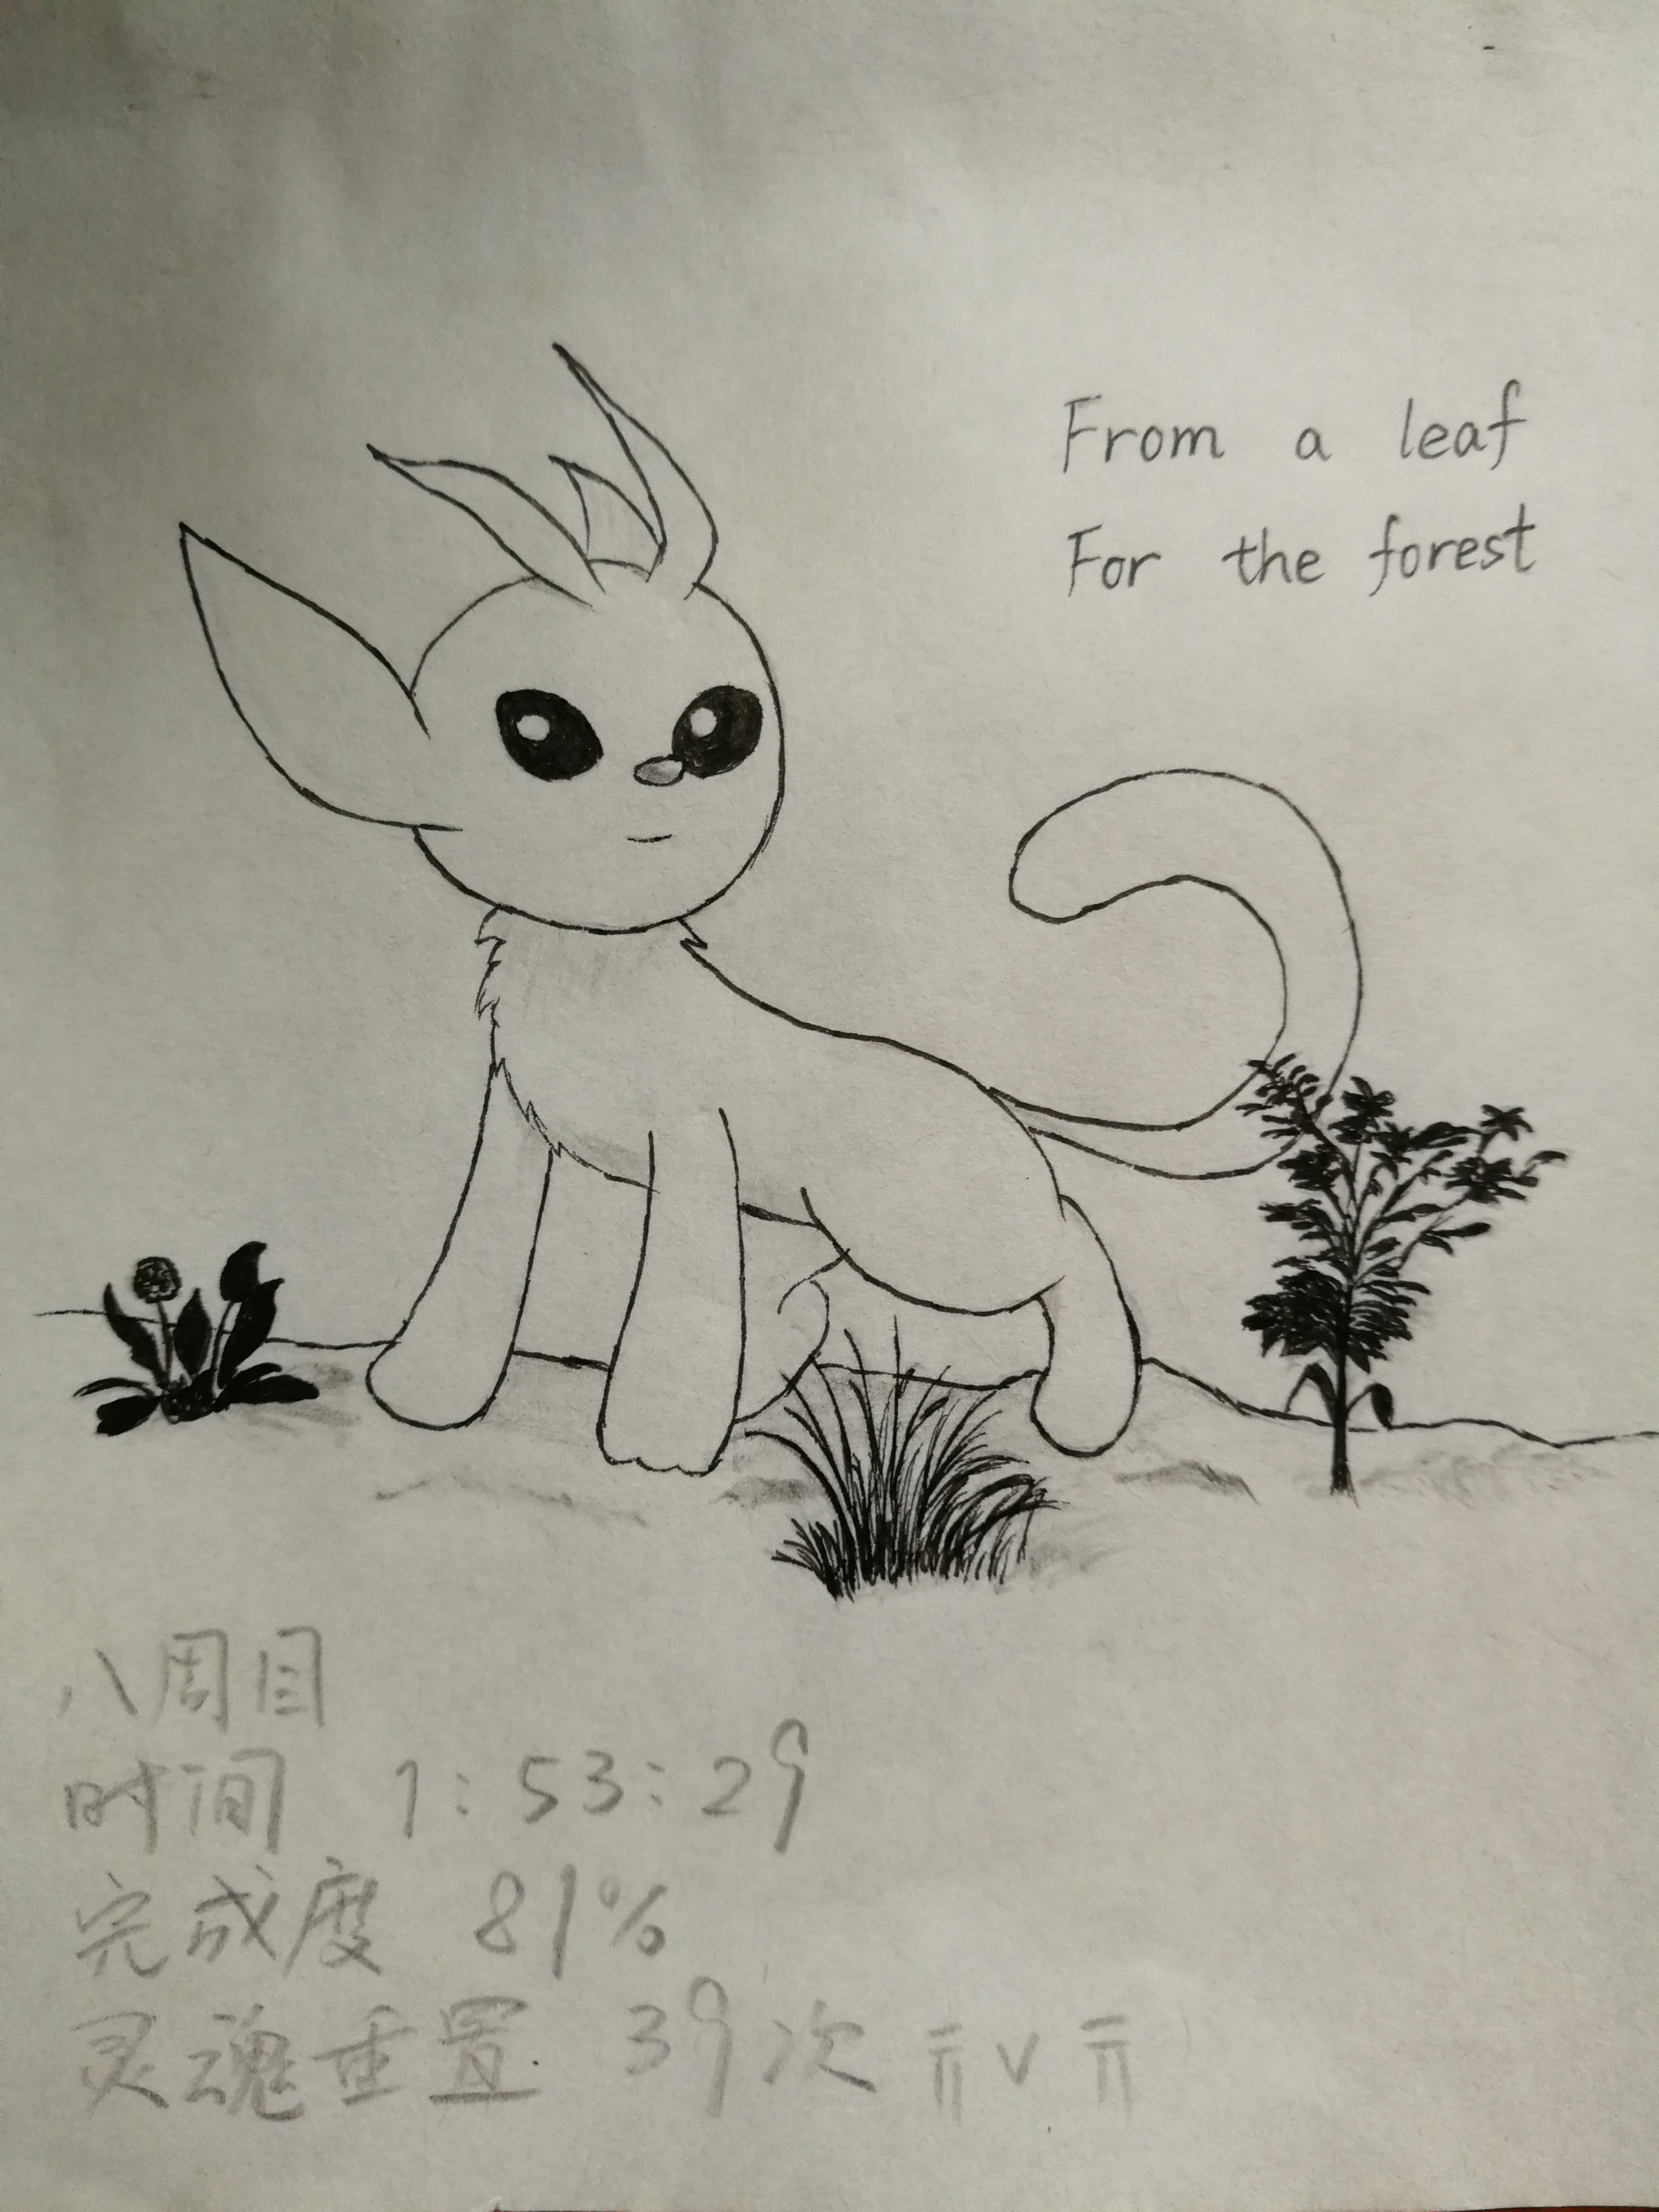 From a leaf
For the forest
八周目
时间 1:53:29
完成度 81%
灵魂重置 39次 πvπ